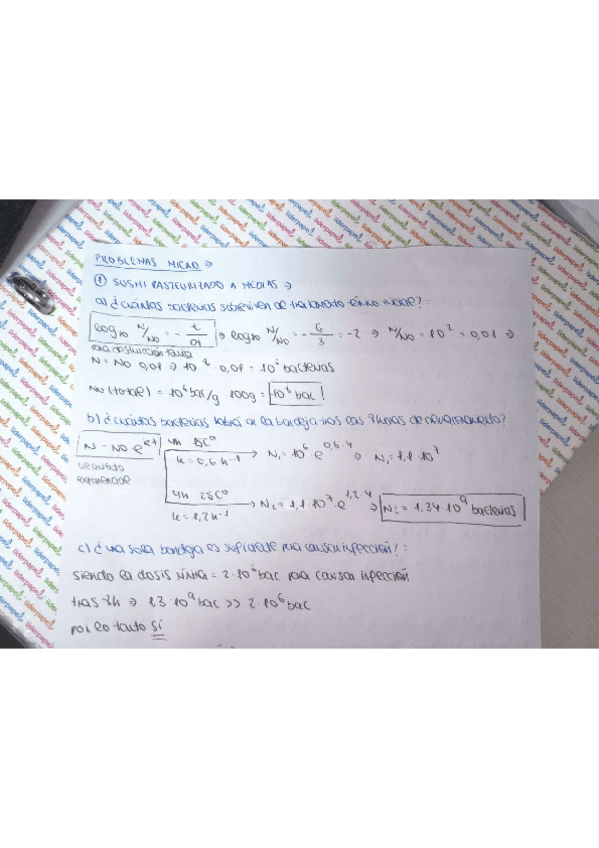 PROBLEMAS MICRO →
① SUSHI PASTEURIZADO A MEDIAS →
a) ¿cuántas bacterias sobreviven de tratamiento térmico inicial?:
log10 N/N0 = - t/DT → log10 N/N0 = - 6/3 = -2 → N/N0 = 10² = 0,01 →
para destrucción térmica
N = N0 · 0,01 → 10⁸ · 0,01 = 10⁶ bacterias
N0 (total) = 10⁶ bac/g · 100g = 10⁸ bac
b) ¿cuántas bacterias habrá en la bandeja tras las 8 horas de almacenamiento?
N = N0 e^kt 4h 15C° k = 0,6 h-1 → N1 = 10⁶ · e^0,6·4 → N1 = 1,1 · 10⁷
crecimiento
exponencial
4h 25C° k = 1,2 h-1 → N2 = 1,1 · 10⁷ · e^1,2·4 → N2 = 1,34 · 10⁹ bacterias
c) ¿una sola bandeja es suficiente para causar infección?:
siendo la dosis mínima = 2 · 10⁶ bac para causar infección
tras 8h → 1,3 · 10⁹ bac >> 2 · 10⁶ bac
por lo tanto sí
liderpapel